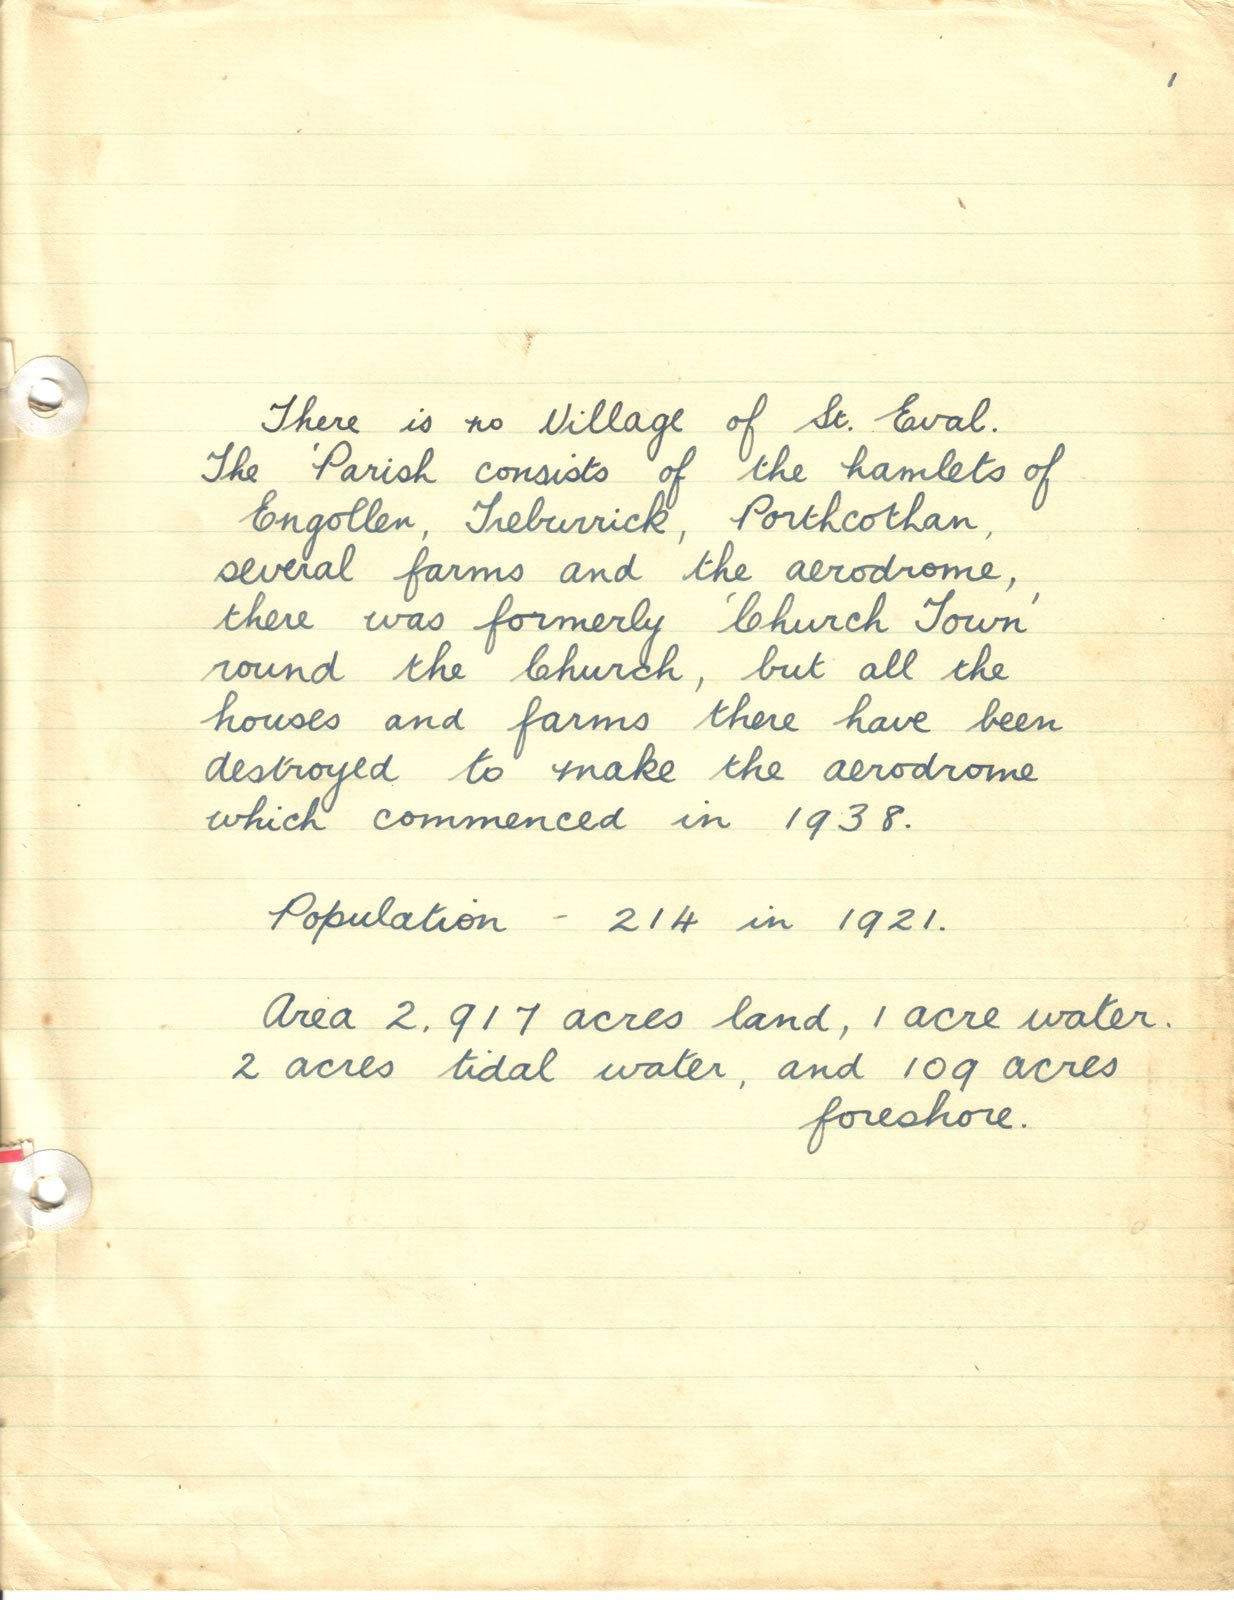 1
There is no Village of St. Eval.
The Parish consists of the hamlets of
Engollen, Treburrick, Porthcothan,
several farms and the aerodrome,
there was formerly 'Church Town'
round the Church, but all the
houses and farms there have been
destroyed to make the aerodrome
which commenced in 1938.
Population - 214 in 1921.
Area 2,917 acres land, 1 acre water.
2 acres tidal water, and 109 acres
foreshore.